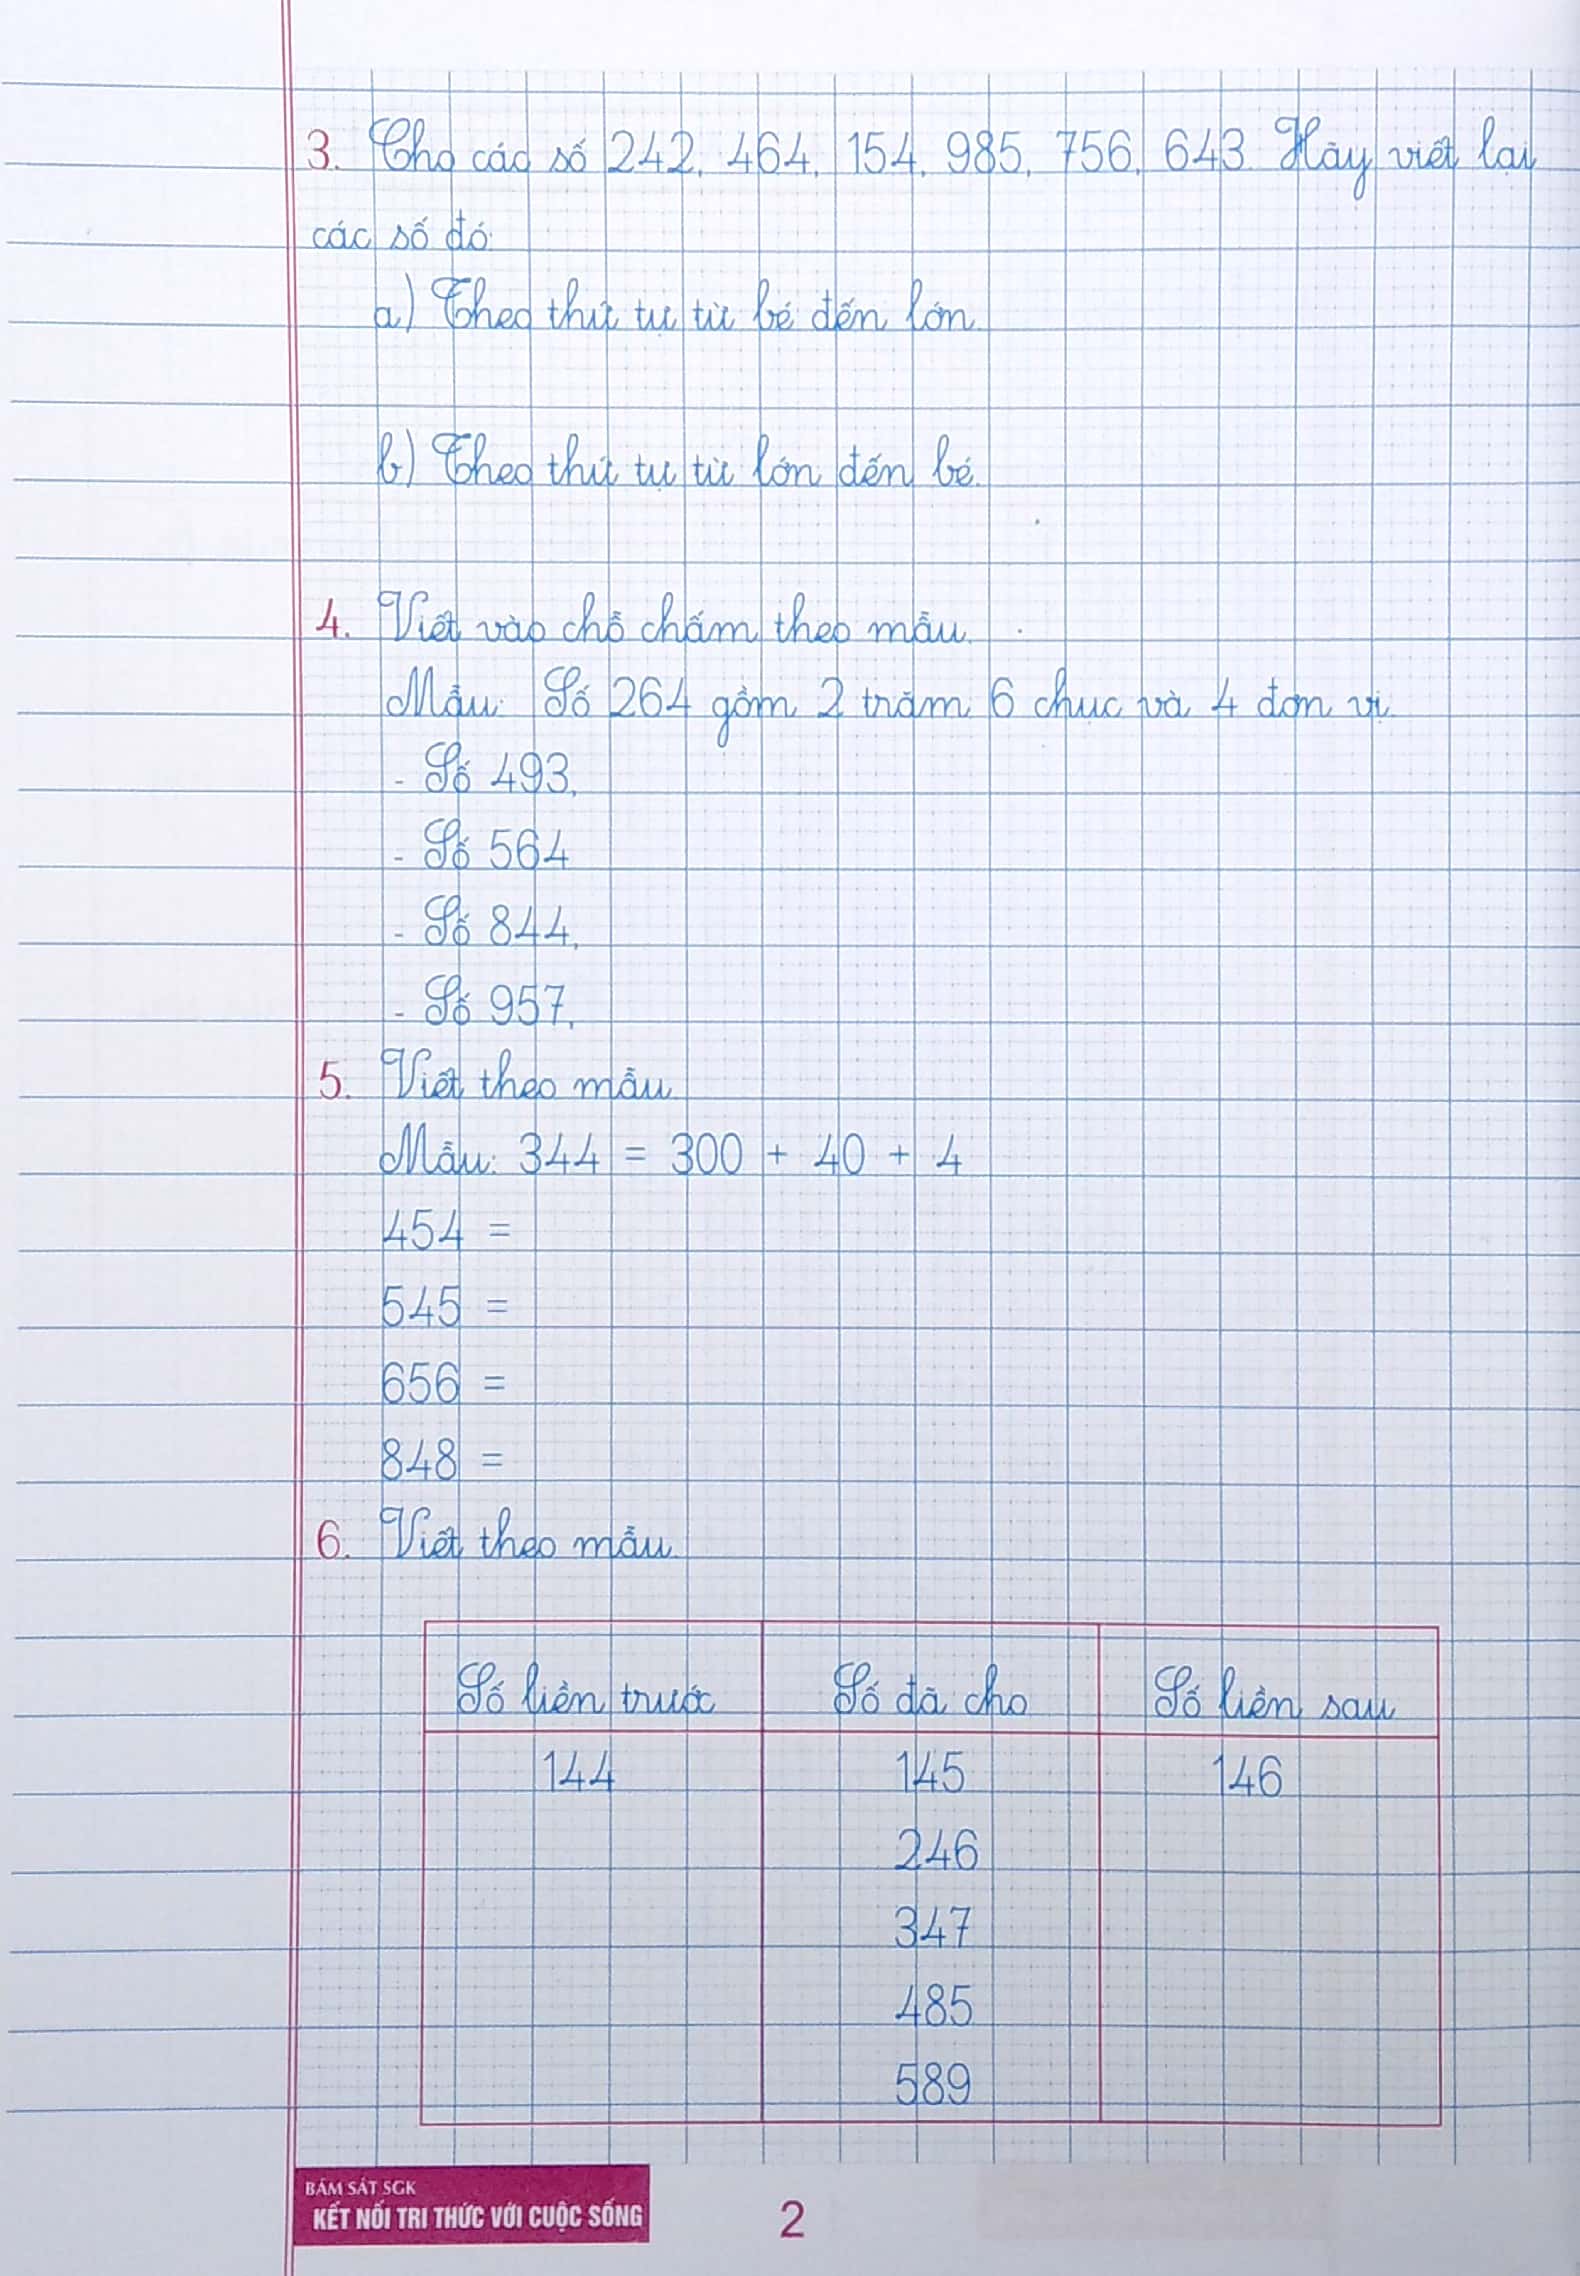 3. Cho các số 242, 464, 154, 985, 756, 643. Hãy viết lại
các số đó:
a) Theo thứ tự từ bé đến lớn.
b) Theo thứ tự từ lớn đến bé.
4. Viết vào chỗ chấm theo mẫu.
Mẫu: Số 264 gồm 2 trăm 6 chục và 4 đơn vị.
- Số 493,
- Số 564
- Số 844,
- Số 957,
5. Viết theo mẫu.
Mẫu: 344 = 300 + 40 + 4
454 =
545 =
656 =
848 =
6. Viết theo mẫu.
Số liền trước Số đã cho Số liền sau
144 145 146
246
347
485
589
BÁM SÁT SGK
KẾT NỐI TRI THỨC VỚI CUỘC SỐNG
2